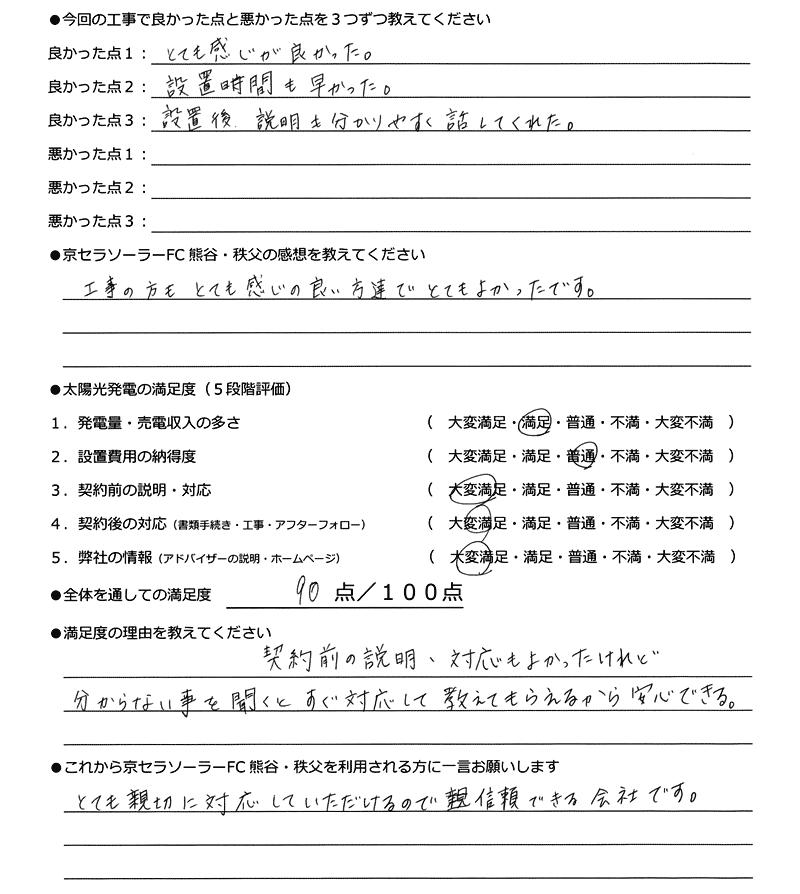 ●今回の工事で良かった点と悪かった点を３つずつ教えてください
良かった点１： とても感じが良かった。
良かった点２： 設置時間も早かった。
良かった点３： 設置後、説明も分かりやすく話してくれた。
悪かった点１：
悪かった点２：
悪かった点３：
●京セラソーラーFC 熊谷・秩父の感想を教えてください
工事の方も とても感じの良い方達で とてもよかったです。
●太陽光発電の満足度（５段階評価）
１．発電量・売電収入の多さ （ 大変満足・満足・普通・不満・大変不満 ）
２．設置費用の納得度 （ 大変満足・満足・普通・不満・大変不満 ）
３．契約前の説明・対応 （ 大変満足・満足・普通・不満・大変不満 ）
４．契約後の対応（書類手続き・工事・アフターフォロー） （ 大変満足・満足・普通・不満・大変不満 ）
５．弊社の情報（アドバイザーの説明・ホームページ） （ 大変満足・満足・普通・不満・大変不満 ）
●全体を通しての満足度 90 点／１００点
●満足度の理由を教えてください
契約前の説明、対応もよかったけれど
分からない事を聞くと すぐ対応して 教えてもらえるから 安心できる。
●これから京セラソーラーFC 熊谷・秩父を利用される方に一言お願いします
とても親切に対応していただけるので 信頼できる 会社です。